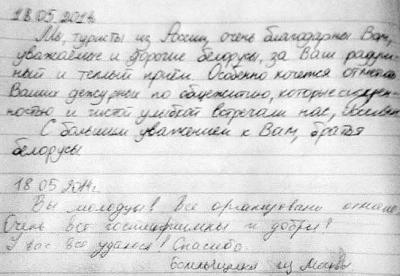 18.05.2014
Мы, туристы из России, очень благодарны Вам,
уважаемые и дорогие белорусы, за Ваш радуш-
ный и теплый приём. Особенно хочется отметить
Ваших дежурных по общежитию, которые с искрен-
ностью и чистой улыбкой встречали нас,
С большим уважением к Вам, братья
белорусы
18.05.2014г.
Вы молодцы! Все организовано отлично.
Очень все гостеприимны и добры!
У вас все удалось! Спасибо.
Болельщики из Москвы